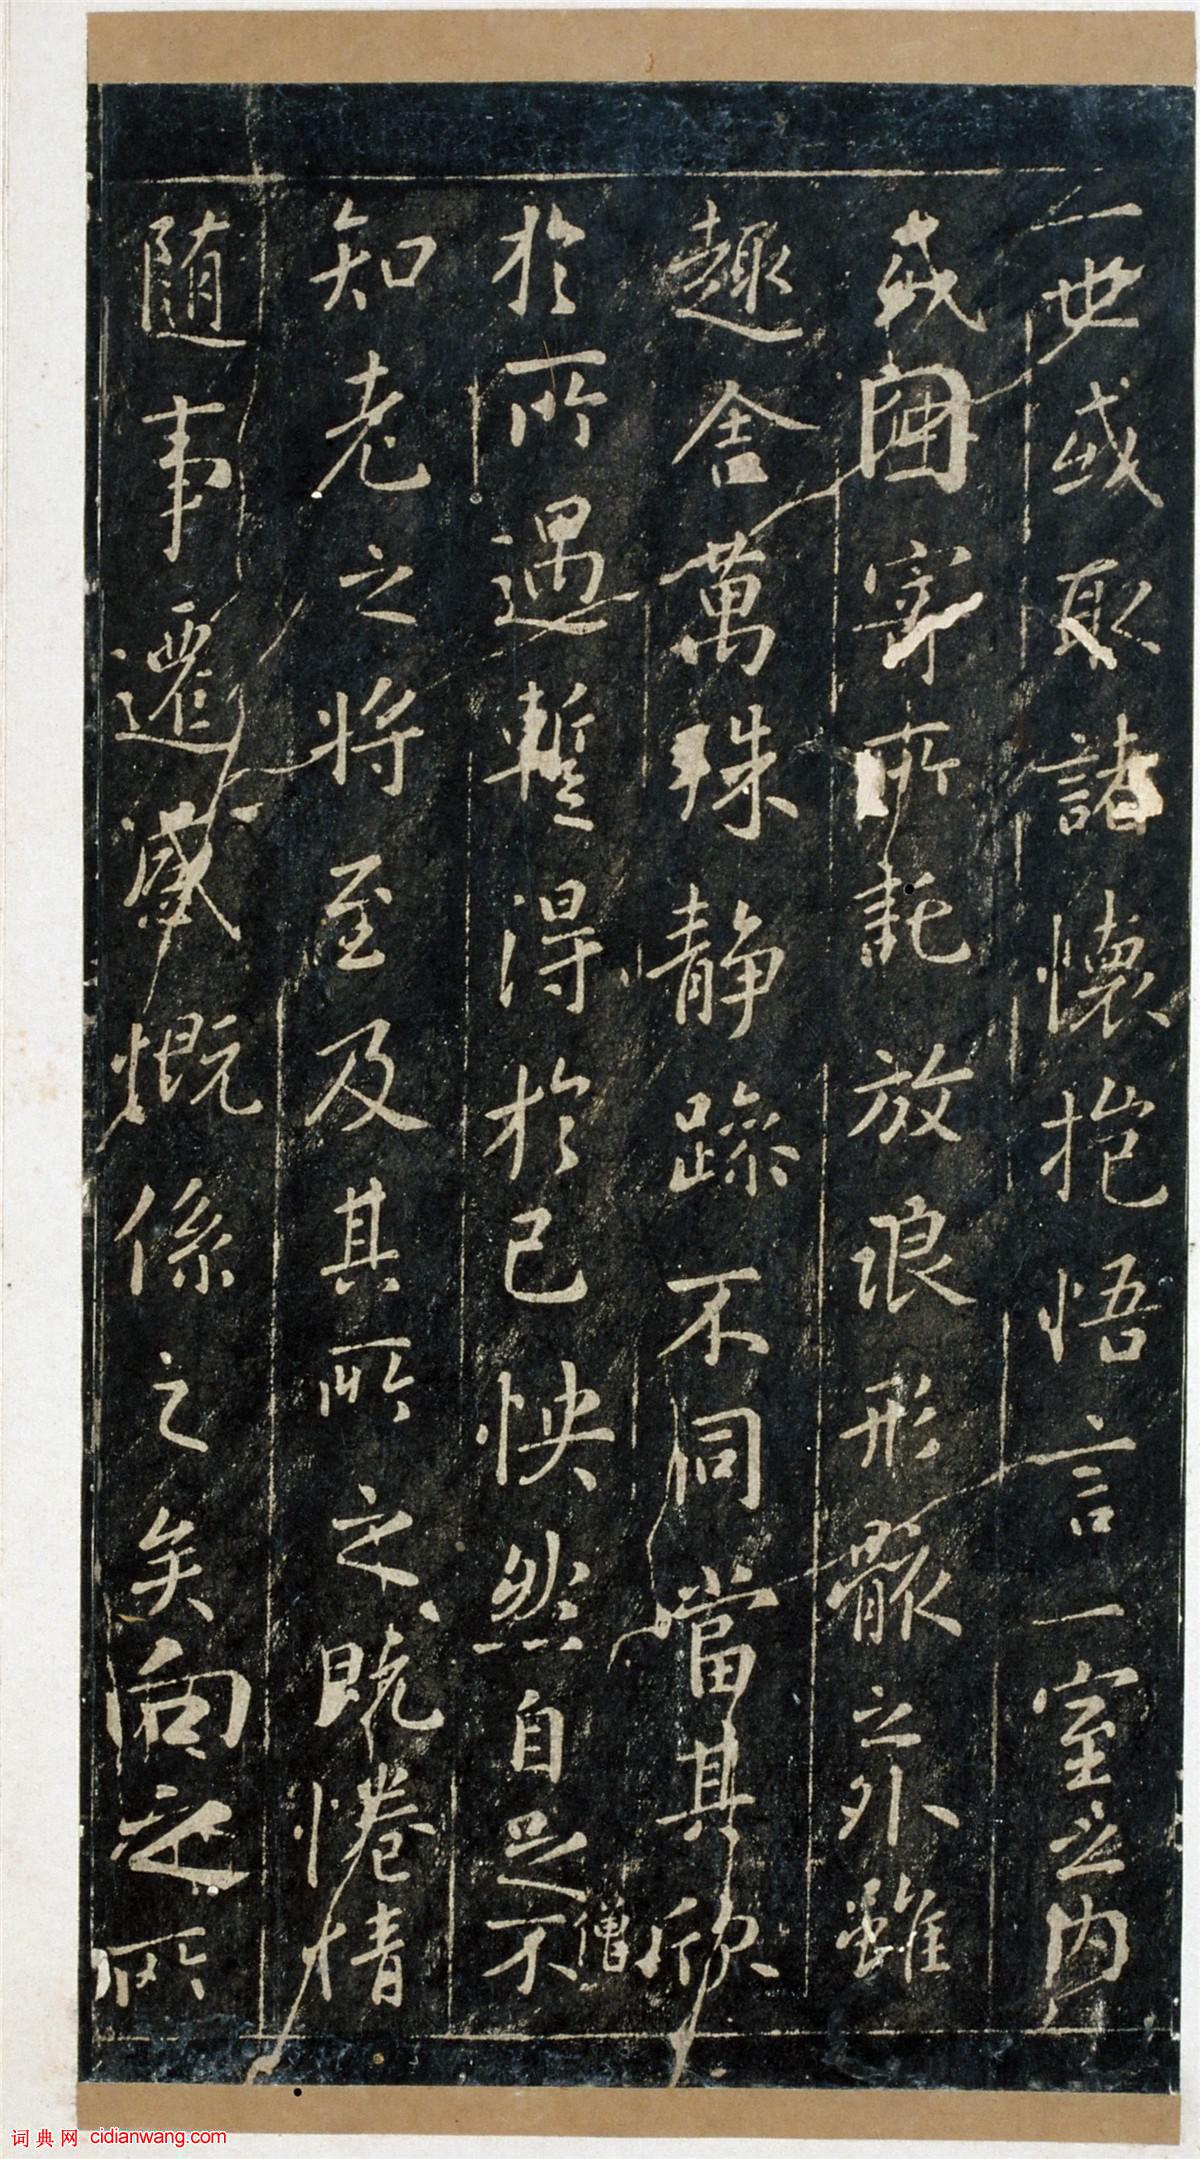 一世或取諸懷抱悟言一室之内
或因寄所託放浪形骸之外雖
趣舍萬殊静躁不同當其欣
於所遇蹔得於己怏然自足不
僧
知老之將至及其所之既惓情
随事遷感慨係之矣向之所
词典网 cidianwang.com